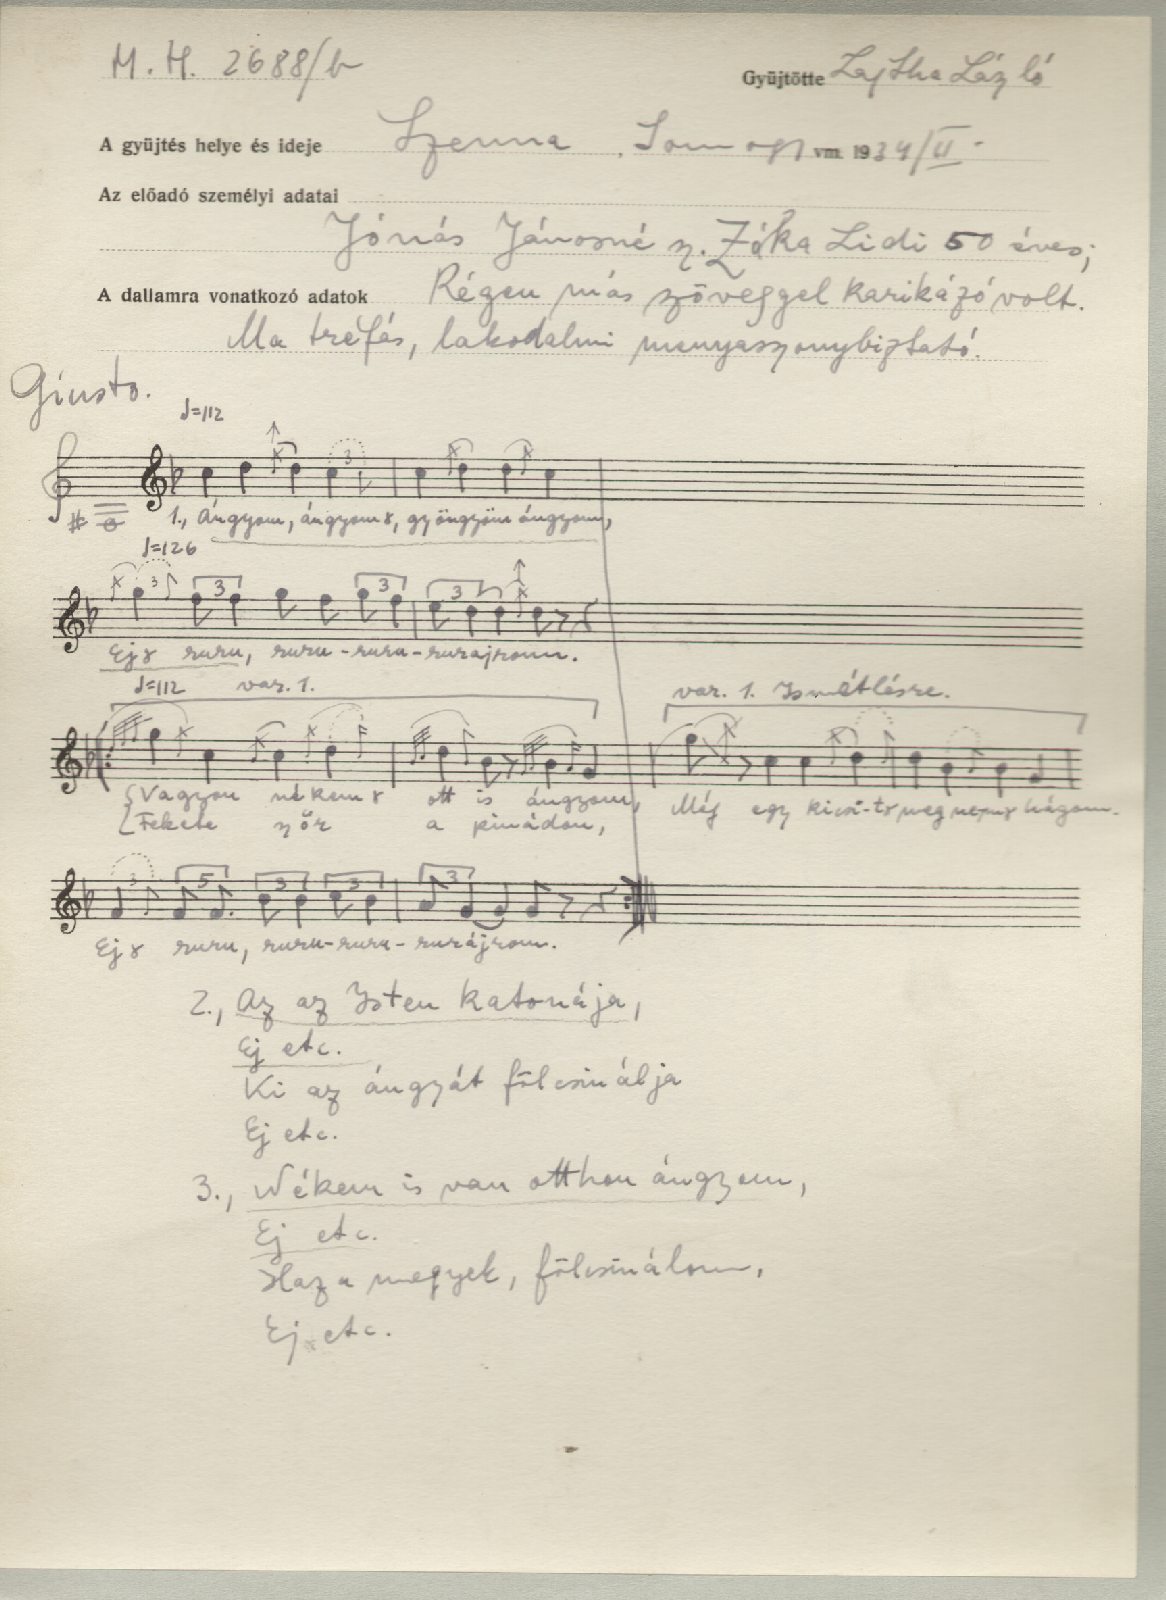 M. H. 2688/b
Gyüjtötte Lajtha László
A gyüjtés helye és ideje Szenna, Somogy vm. 1934/II.
Az előadó személyi adatai
Jónás Jánosné sz. Zóka Lidi 50 éves;
A dallamra vonatkozó adatok Régen más szöveggel karikázó volt.
Ma tréfás, lakodalmi menyasszonybiztató.
Giusto.
♩=112
3
1., Ángyom, ángyomɤ, gyöngyöm ángyom,
♩=126
3 3 3 3
Ejɤ ruru, ruru-ruru-rurajrom.
♩=112 var. 1. var. 1. Ismétlésre.
Vagyon nékemɤ ott is ángyom, Még egy kicsi-ts meg nemɤ hágom.
Fekete szőr a pinádon,
3 5 3 3 3
Ejɤ ruru, ruru-ruru-rurájrom.
2., Az az Isten katonája,
Ej etc.
Ki az ángyát fölcsinálja
Ej etc.
3., Nékem is van otthon ángyom,
Ej etc.
Haza megyek, fölcsinálom,
Ej etc.